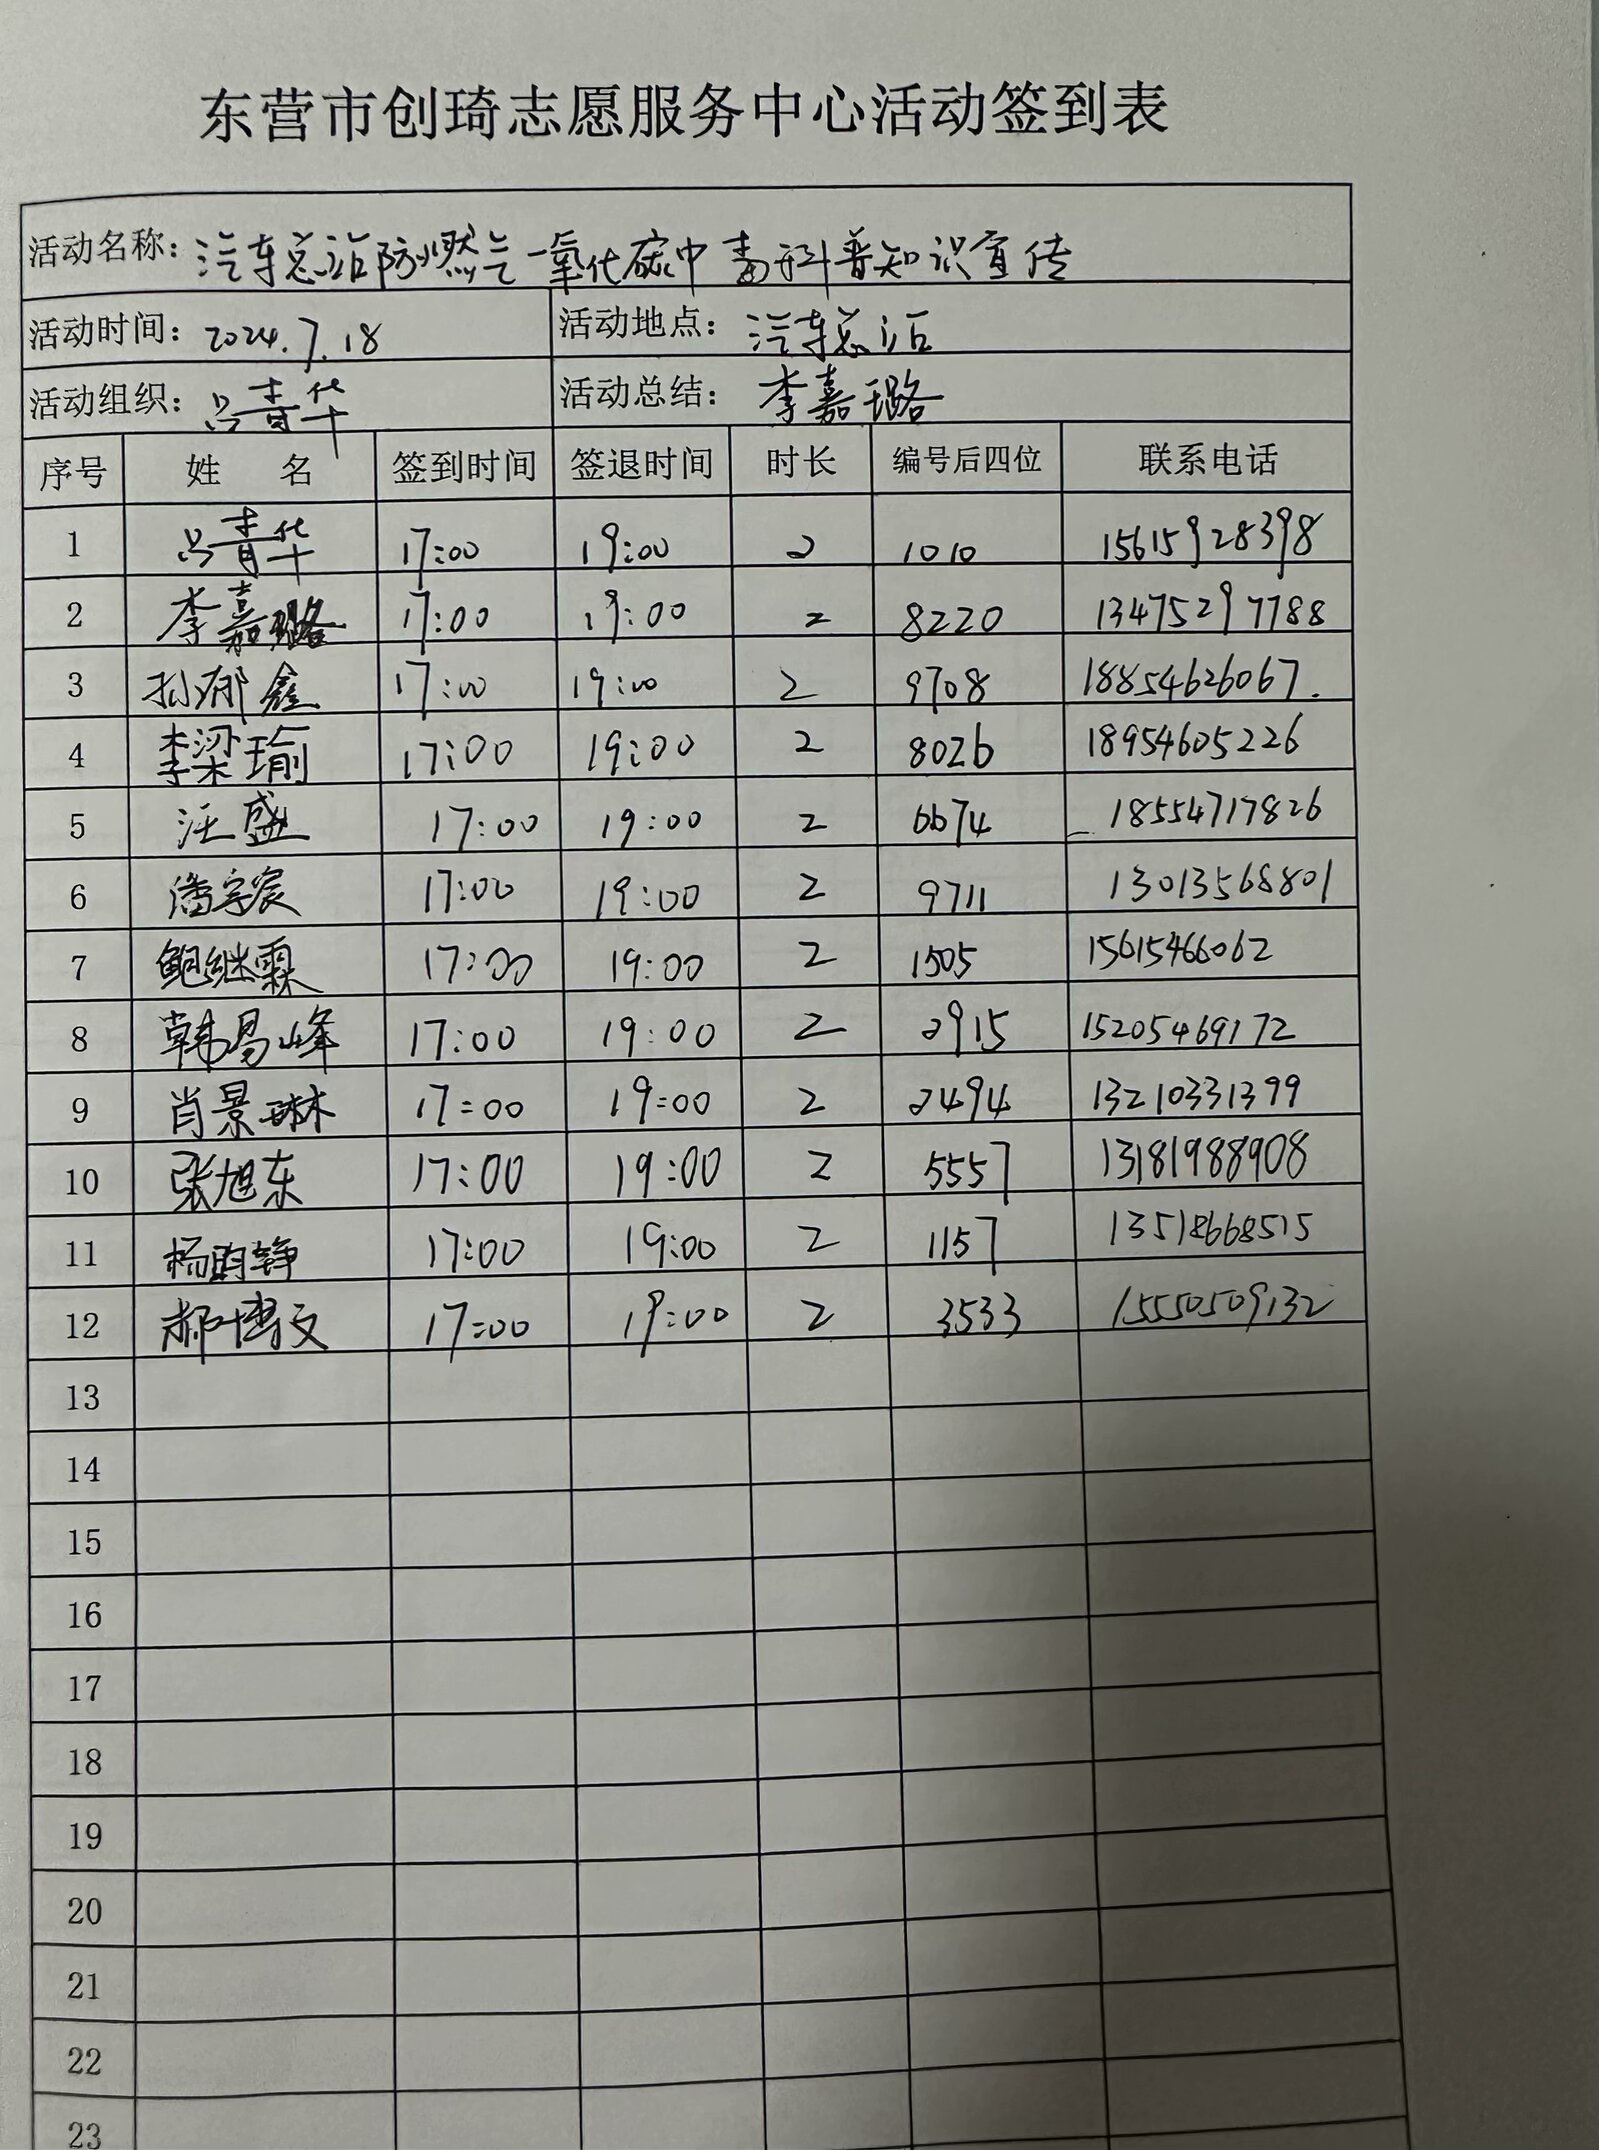 东营市创琦志愿服务中心活动签到表
活动名称：汽车总站防燃气一氧化碳中毒科普知识宣传
活动时间：2024.7.18 活动地点：汽车总站
活动组织：吕青华 活动总结：李嘉璐
序号 姓 名 签到时间 签退时间 时长 编号后四位 联系电话
1 吕青华 17:00 19:00 2 1010 15615928398
2 李嘉璐 17:00 19:00 2 8220 13475297788
3 孙郁鑫 17:00 19:00 2 9708 18854626067.
4 李梁瑜 17:00 19:00 2 8026 18954605226
5 汪盛 17:00 19:00 2 6674 18554717826
6 潘宇宸 17:00 19:00 2 9711 13013568801
7 鲍继霖 17:00 19:00 2 1505 15615466062
8 韩易峰 17:00 19:00 2 2915 15205469172
9 肖景琳 17:00 19:00 2 2494 13210331399
10 张旭东 17:00 19:00 2 5557 13181988908
11 杨昀铮 17:00 19:00 2 1157 13518668515
12 郝博文 17:00 19:00 2 3533 15550509132
13
14
15
16
17
18
19
20
21
22
23